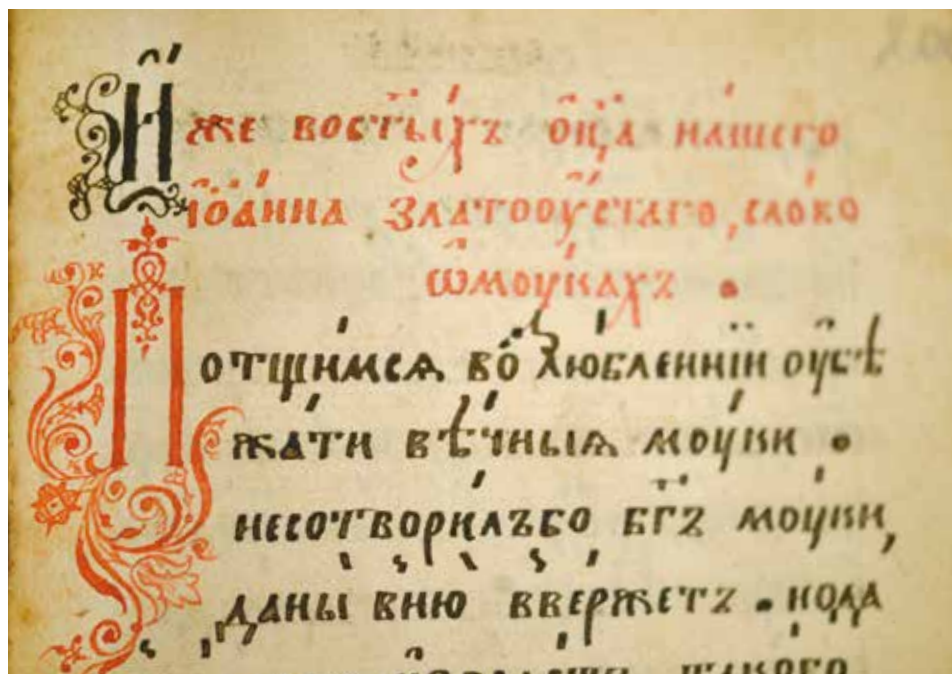 И҆́же во ст҃ы́хъ ѻ҆ц҃а на́шего
і҆ѻа́нна златоꙋ́стаго, сло́во
ѡ҆ моу́кахъ .
Потщи́мсѧ во́ꙁлюбленнїи оу҆бѣ
жа́ти вѣ́чныѧ моу́ки .
несотвори́лъбо бг҃ъ моу́ки,
даны вню вве́ржетъ . нода